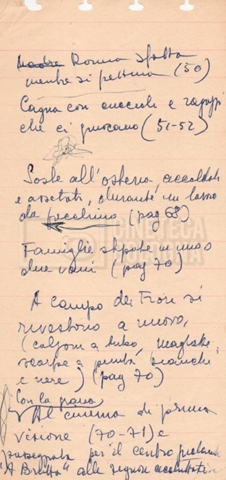 Donna sfatta
mentre si pettina (50)
Cagna con cuccioli e ragazzi
che ci giocano (51-52)
Soste all'osteria accaldati
e assetati, durante un lasso
da (pag 68)
Famiglie stipate in uno o
due vani (pag 70)
A Campo dei Fiori si
rivestono a nuovo,
(calzoni a tubo, magliette,
scarpe a punta bianche
e nere) (pag 70)
Con la grana
Al cinema di prima
visione (70-71) e
per il centro
alle signore
CINETECA
BOLOGNA